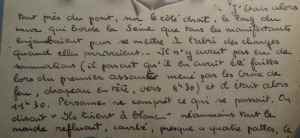 "J'étais alors
Tout près du pont, sur le côté droit, le long du
mur qui borde la Seine que tous les manifestants
enjambaient pour se mettre à l'abri des charges
quand elles parvenaient. Il n'y avait pas eu de
sommations (il parait qu'il en avait été faites
lors du premier assaut mené par les Croix de
feu, chapeau en tête, vers 6h30) et il était alors
11h30. Personne ne comprit ce qui se passait. On
disait "Ils tirent à blanc" néanmoins tout le
monde refluait, courbé, presque à quatre pattes, le